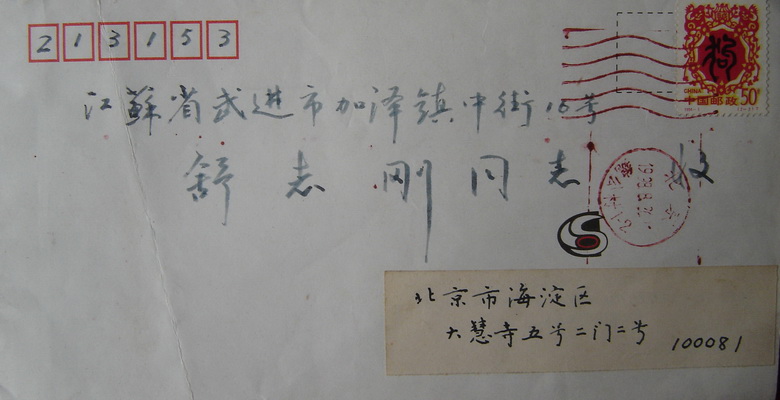 213153
江蘇省武进市加泽镇中街15号
舒志刚同志 收
狗
CHINA
中国邮政 50分
北京市海淀区
大慧寺五号二门二号
100081